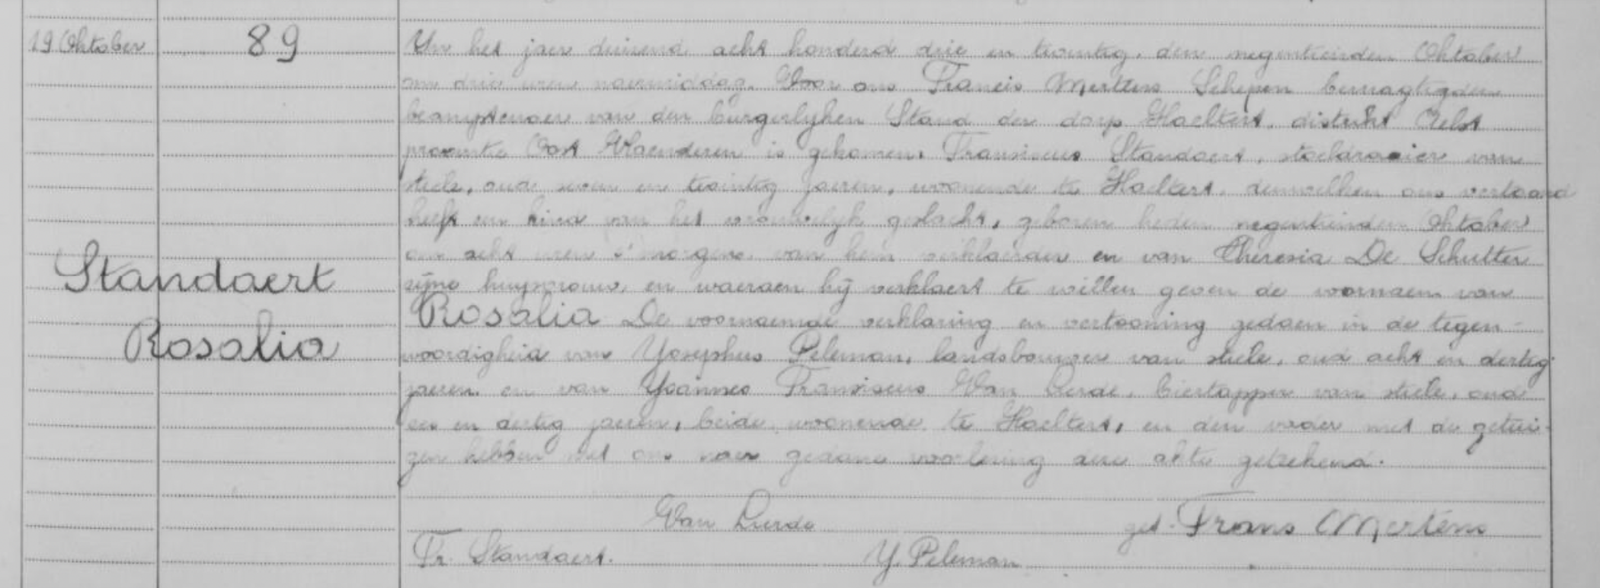 19 Oktober 89 Yn het jaer duizend acht honderd drie en twintig, den negentienden Oktober
om drie uren naermiddag. Voor ons Francis Mertens Schepen bemagtigden
beamptenaer van den burgerlyken Stand der dorp Haeltert, distrikt Aelst
provintie Oost Vlaenderen is gekomen, Fransiscus Standaert, stoeldraaier van
stiele, oud seven en twintig jaeren, woonende te Haeltert, denwelken ons vertoond
heeft een kind van het vrouwelyk geslacht, geboren heden negentienden Oktober
om acht uren s' morgens, van hem verklaerder en van Theresia De Schutter
Standaert
zijne huysvrouw, en waeraen hij verklaert te willen geven de voornaem van
Rosalia De voornaemde verklaring en vertooning gedaen in de tegen-
Rosalia
woordigheid van Yosephus Peleman, landsbouwer van stiele, oud acht en dertig
jaeren en van Yoannes Fransiscus Van Lierde, biertapper van stiele, oud
ses en dertig jaeren, beide woonende te Haeltert, en den vader met de getui-
gen hebben met ons naer gedane voorlezing deze akte geteekend.
Van Lierde get. Frans Mertens
Fr. Standaert. Y. Peleman